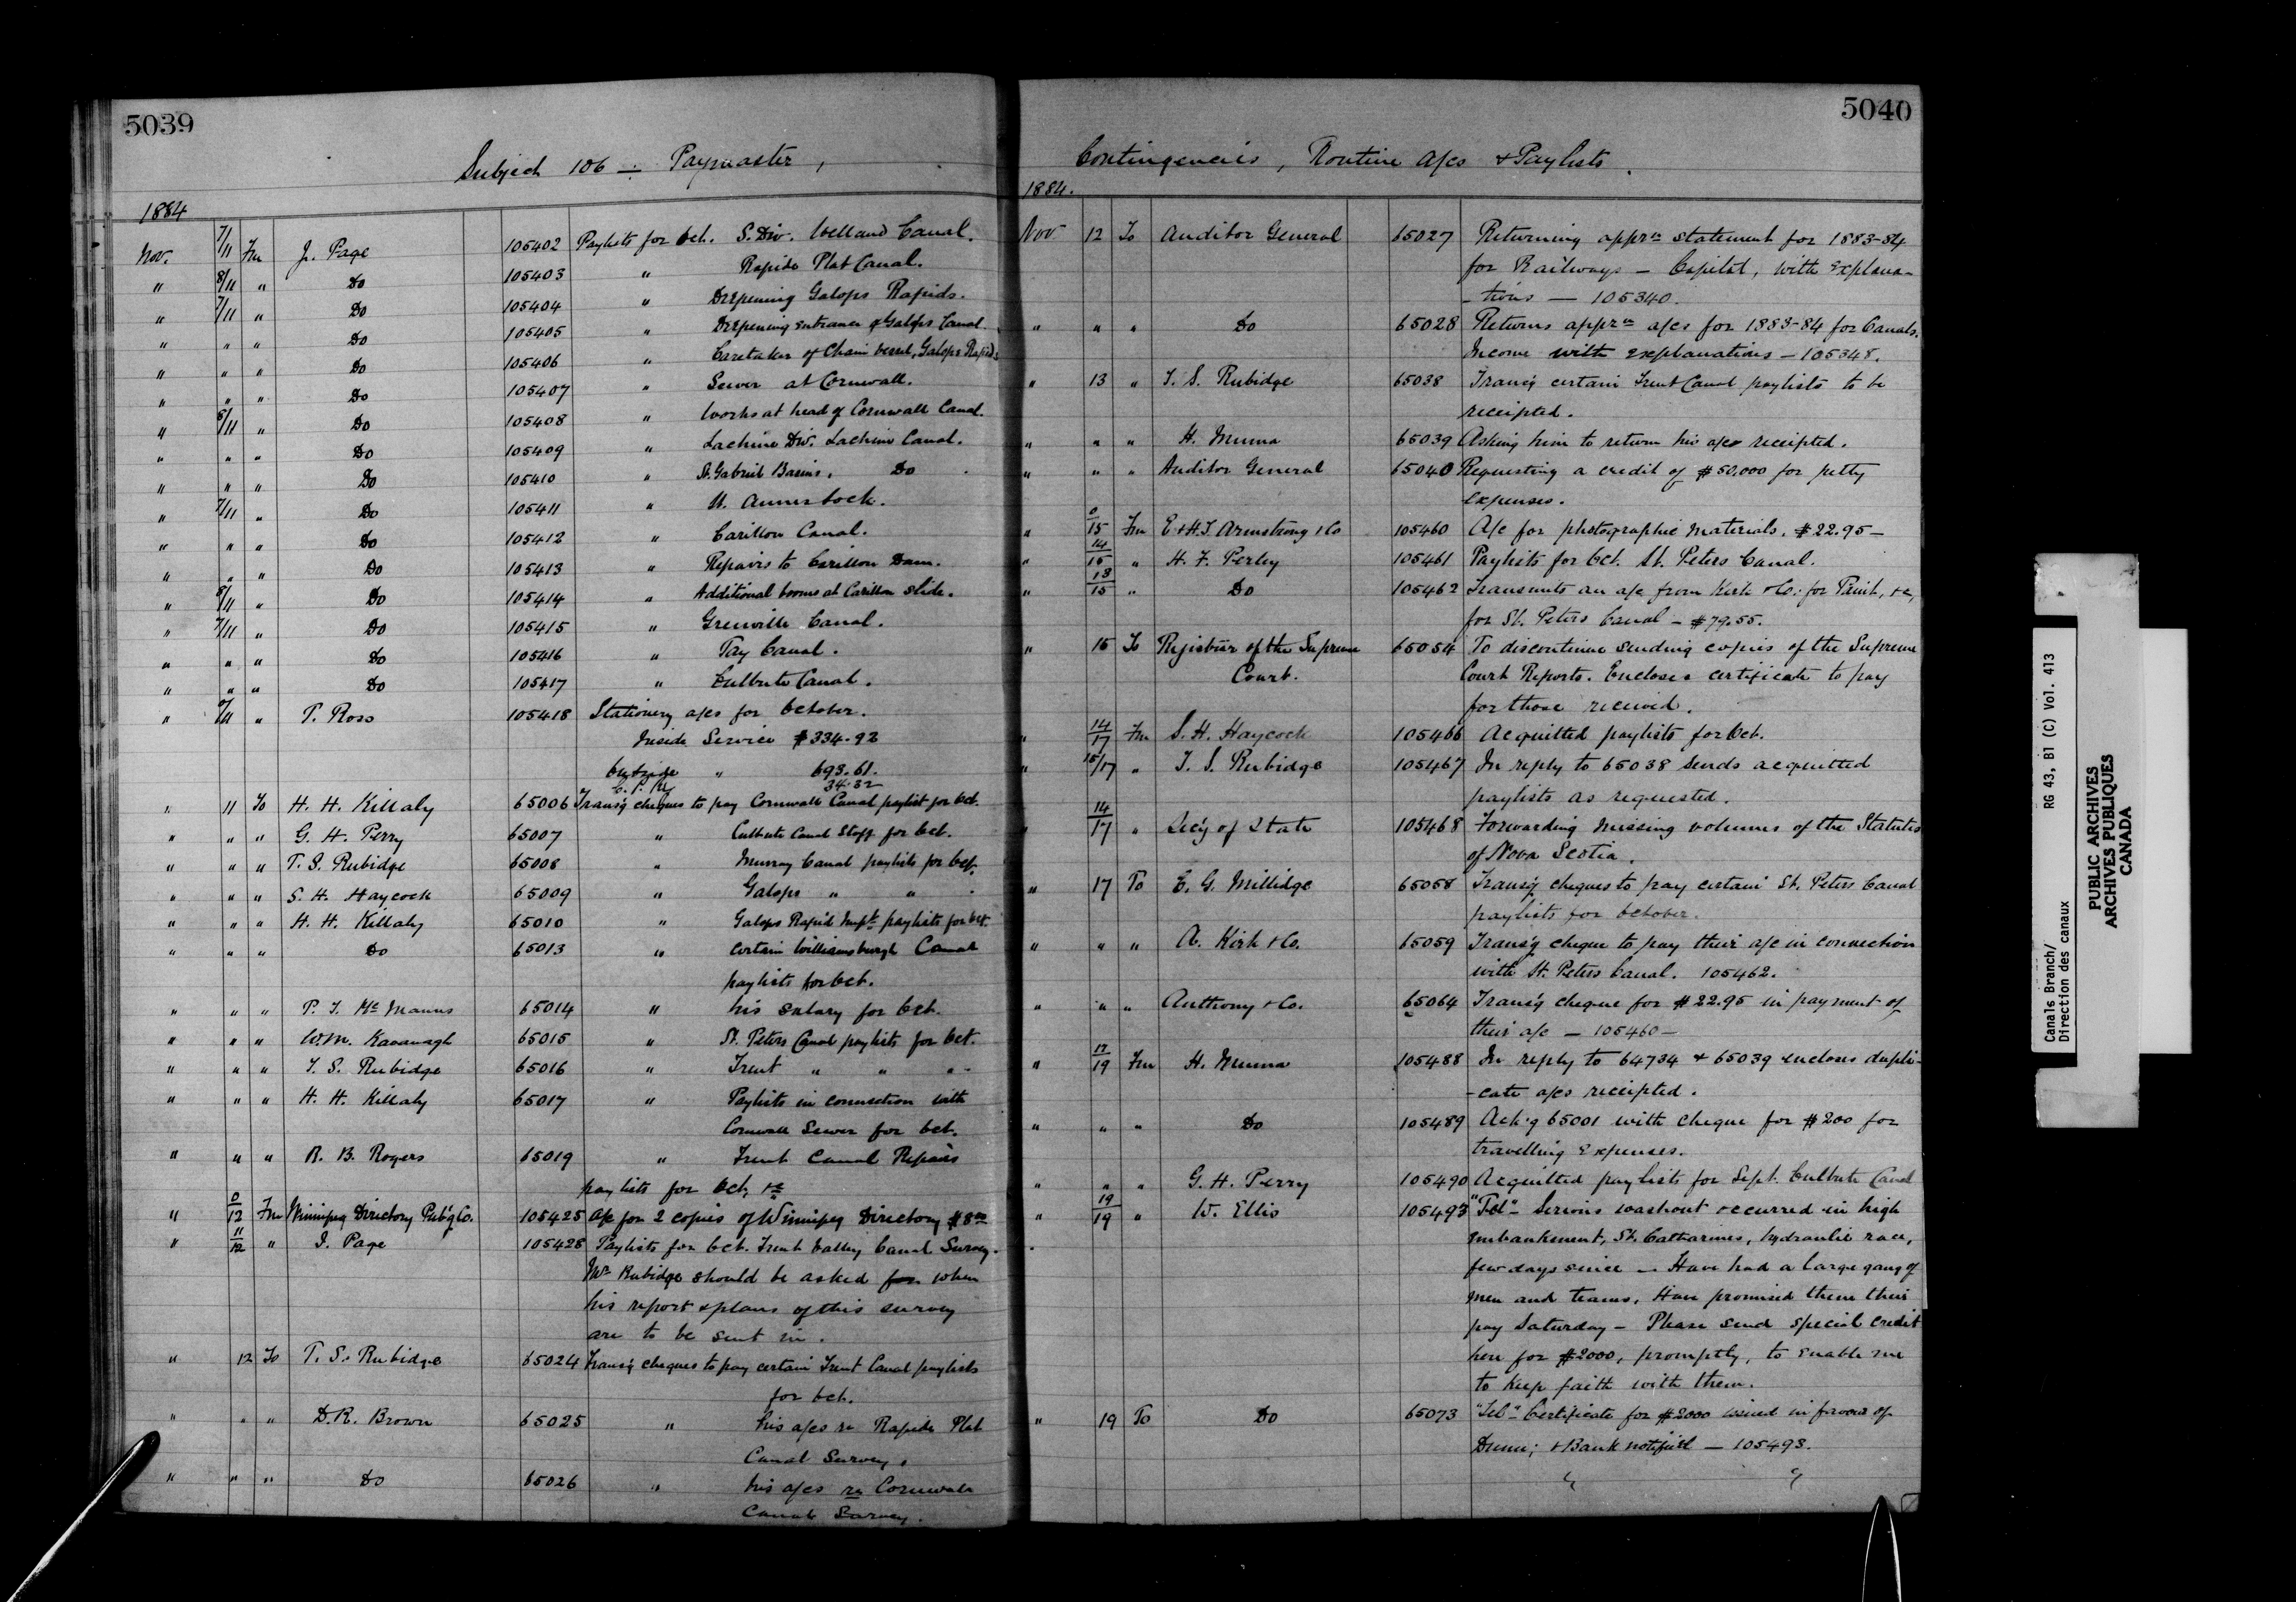 5039
Subject 106 — Paymaster,
1884
Nov. 7/11 Fm J. Page 105402 Paylists for Oct. S. Div. Welland Canal.
" 8/11 " Do 105403 " Rapide Plat Canal.
" 7/11 " Do 105404 " Deepening Galops Rapids.
" " " Do 105405 " Deepening entrance of Galops Canal.
" " " Do 105406 " Caretaker of Chain vessel, Galops Rapids
" " " Do 105407 " Sewer at Cornwall.
" 8/11 " Do 105408 " Works at head of Cornwall Canal.
" " " Do 105409 " Lachine Div. Lachine Canal.
" " " Do 105410 " St. Gabriel Basins. Do
" 7/11 " Do 105411 " St. Annes Lock.
" " " Do 105412 " Carillon Canal.
" " " Do 105413 " Repairs to Carillon Dam.
" 8/11 " Do 105414 " Additional booms at Carillon slide.
" 7/11 " Do 105415 " Grenville Canal.
" " " Do 105416 " Tay Canal.
" " " Do 105417 " Culbute Canal.
" 0/11 " P. Ross 105418 Stationery a/cs for October.
Inside Service $334.92
Outside " 693.61.
C.P.Ry 34.32
" 11 To H. H. Killaly 65006 Trans'g cheques to pay Cornwall Canal paylist for Oct.
" " " G. H. Perry 65007 " Culbute Canal Staff for Oct.
" " " T. S. Rubidge 65008 " Murray Canal paylists for Oct.
" " " S. H. Haycock 65009 " Galops " " "
" " " H. H. Killaly 65010 " Galops Rapid Impt. paylists for Oct.
" " " Do 65013 " certain Williamsburgh Canal
paylists for Oct.
" " " P. J. McManus 65014 " his salary for Oct.
" " " W.m. Kavanagh 65015 " St. Peters Canal paylists for Oct.
" " " T. S. Rubidge 65016 " Trent " " "
" " " H. H. Killaly 65017 " Paylists in connection with
Cornwall Sewer for Oct.
" " " R. B. Rogers 65019 " Trent Canal Repairs
paylists for Oct, &c
" 0/12 Fm Winnipeg Directory Pub'g Co. 105425 A/c for 2 copies of Winnipeg Directory $8.00
" 11/12 " J. Page 105428 Paylists for Oct. Trent Valley Canal Survey.
Mr Rubidge should be asked for when
his report & plans of this survey
are to be sent in.
" 12 To T. S. Rubidge 65024 Trans'g cheques to pay certain Trent Canal paylists
for Oct.
" " " D.R. Brown 65025 " his a/cs re Rapide Plat
Canal Survey.
" " " Do 65026 " his a/cs re Cornwall
Canal Survey.
5040
Contingencies, Routine A/cs & Paylists.
1884.
Nov 12 To Auditor General 65027 Returning apprn statement for 1883-84
for Railways — Capital, with explana-
-tions — 105340.
" " " Do 65028 Returns apprn a/cs for 1883-84 for Canals.
Income with explanations — 105348.
" 13 " T. S. Rubidge 65038 Trans'g certain Trent Canal paylists to be
receipted.
" " " H. Muma 65039 Asking him to return his a/cs receipted.
" " " Auditor General 65040 Requesting a credit of $50.000 for petty
expenses.
" 0/15 Fm E & H.T. Armstrong & Co 105460 A/c for photographic materials. $22.95 —
" 14/15 " H. F. Perley 105461 Paylists for Oct. St. Peters Canal.
" 13/15 " Do 105462 Transmits an a/c from Kirk & Co. for Paint, &c,
for St. Peters Canal — $79.55.
" 15 To Registrar of the Supreme 65054 To discontinue sending copies of the Supreme
Court. Court Reports. Encloses certificate to pay
for those received.
" 14/17 Fm S. H. Haycock 105466 Acquitted paylists for Oct.
" 15/17 " T. S. Rubidge 105467 In reply to 65038 sends acquitted
paylists as requested.
" 14/17 " Sec'y of State 105468 Forwarding missing volumes of the Statutes
of Nova Scotia.
" 17 To E. G. Millidge 65058 Trans'g cheques to pay certain St. Peters Canal
paylists for October.
" " " A. Kirk & Co. 65059 Trans'g cheque to pay their a/c in connection
with St. Peters Canal. 105462.
" " " Anthony & Co. 65064 Trans'g cheque for $22.95 in payment of
their a/c — 105460 —
" 17/19 Fm H. Muma 105488 In reply to 64734 & 65039 encloses dupli-
-cate a/cs receipted.
" " " Do 105489 Ack'g 65001 with cheque for $200 for
travelling expenses.
" " " G. H. Perry 105490 Acquitted paylists for Sept. Culbute Canal
" 19/19 " W. Ellis 105493 "Tel" Serious washout occurred in high
embankment, St. Catharines, hydraulic race,
few days since — Have had a large gang of
men and teams, Have promised them their
pay Saturday — Please send special credit
here for $2000, promptly, to enable me
to keep faith with them.
" 19 To Do 65073 "Tel" Certificate for $2000 issued in favour of
Dunn; & Bank notified — 105493.
" "
Canals Branch/ RG 43, B1 (C) Vol. 413
Direction des canaux
PUBLIC ARCHIVES
ARCHIVES PUBLIQUES
CANADA